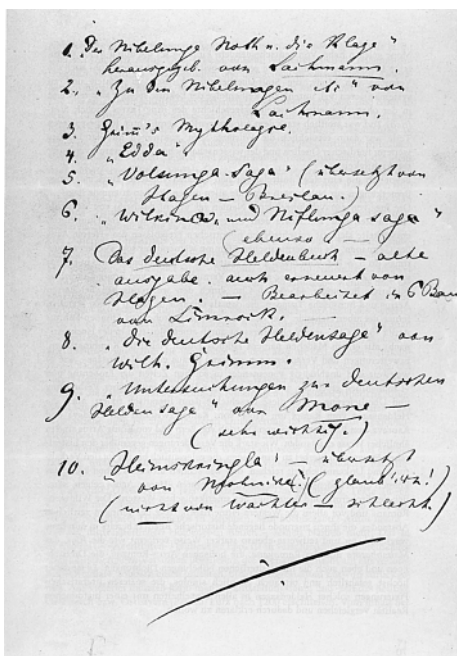 1. „Der Nibelunge Noth u. die Klage“
herausgegeb. von Lachmann.
2. „Zu den Nibelungen etc“ von
Lachmann.
3. Grimm's Mythologie.
4. „Edda“
5. „Volsunga-saga“ (übersetzt von
Hagen – Breslau.)
6. „Wilkina- und Niflunga saga“
(ebenso –
7. Das deutsche Heldenbuch – alte
ausgabe. auch erneuert von
Hagen. – Bearbeitet in 6 Bän
von Simrock.
8. „die deutsche Heldensage“ von
Wilh. Grimm.
9. „Untersuchungen zur deutschen
Heldensage“ von Mone –
(sehr wichtig.)
10. „Heimskringla“ – übersetzt
von Mohnike. (glaub' ich!)
(nicht von Wachter – schlecht.)